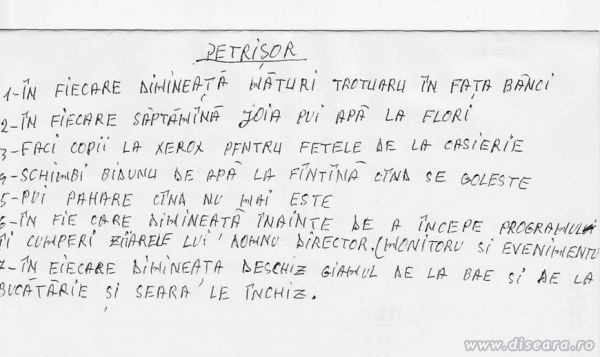 PETRIȘOR
1-ÎN FIECARE DIMINEAȚĂ MĂTURI TROTUARU ÎN FAȚA BĂNCI
2-ÎN FIECARE SĂPTĂMÎNĂ JOIA PUI APĂ LA FLORI
3-FACI COPII LA XEROX PENTRU FETELE DE LA CASIERIE
4-SCHIMBI BIDUNU DE APĂ LA FÎNTÎNĂ CÎND SE GOLEȘTE
5-PUI PAHARE CÎND NU MAI ESTE
6-ÎN FIE CARE DIMINEAȚĂ ÎNAINTE DE A ÎNCEPE PROGRAMUL
ÎI CUMPERI ZIARELE LUI DOMNU DIRECTOR.(MONITORU SI EVENIMENTU
7-ÎN FIECARE DIMINEAȚA DESCHIZ GIAMUL DE LA BAE SI DE LA
BUCĂTĂRIE ȘI SEARA LE ÎNCHIZ.
www.diseara.ro